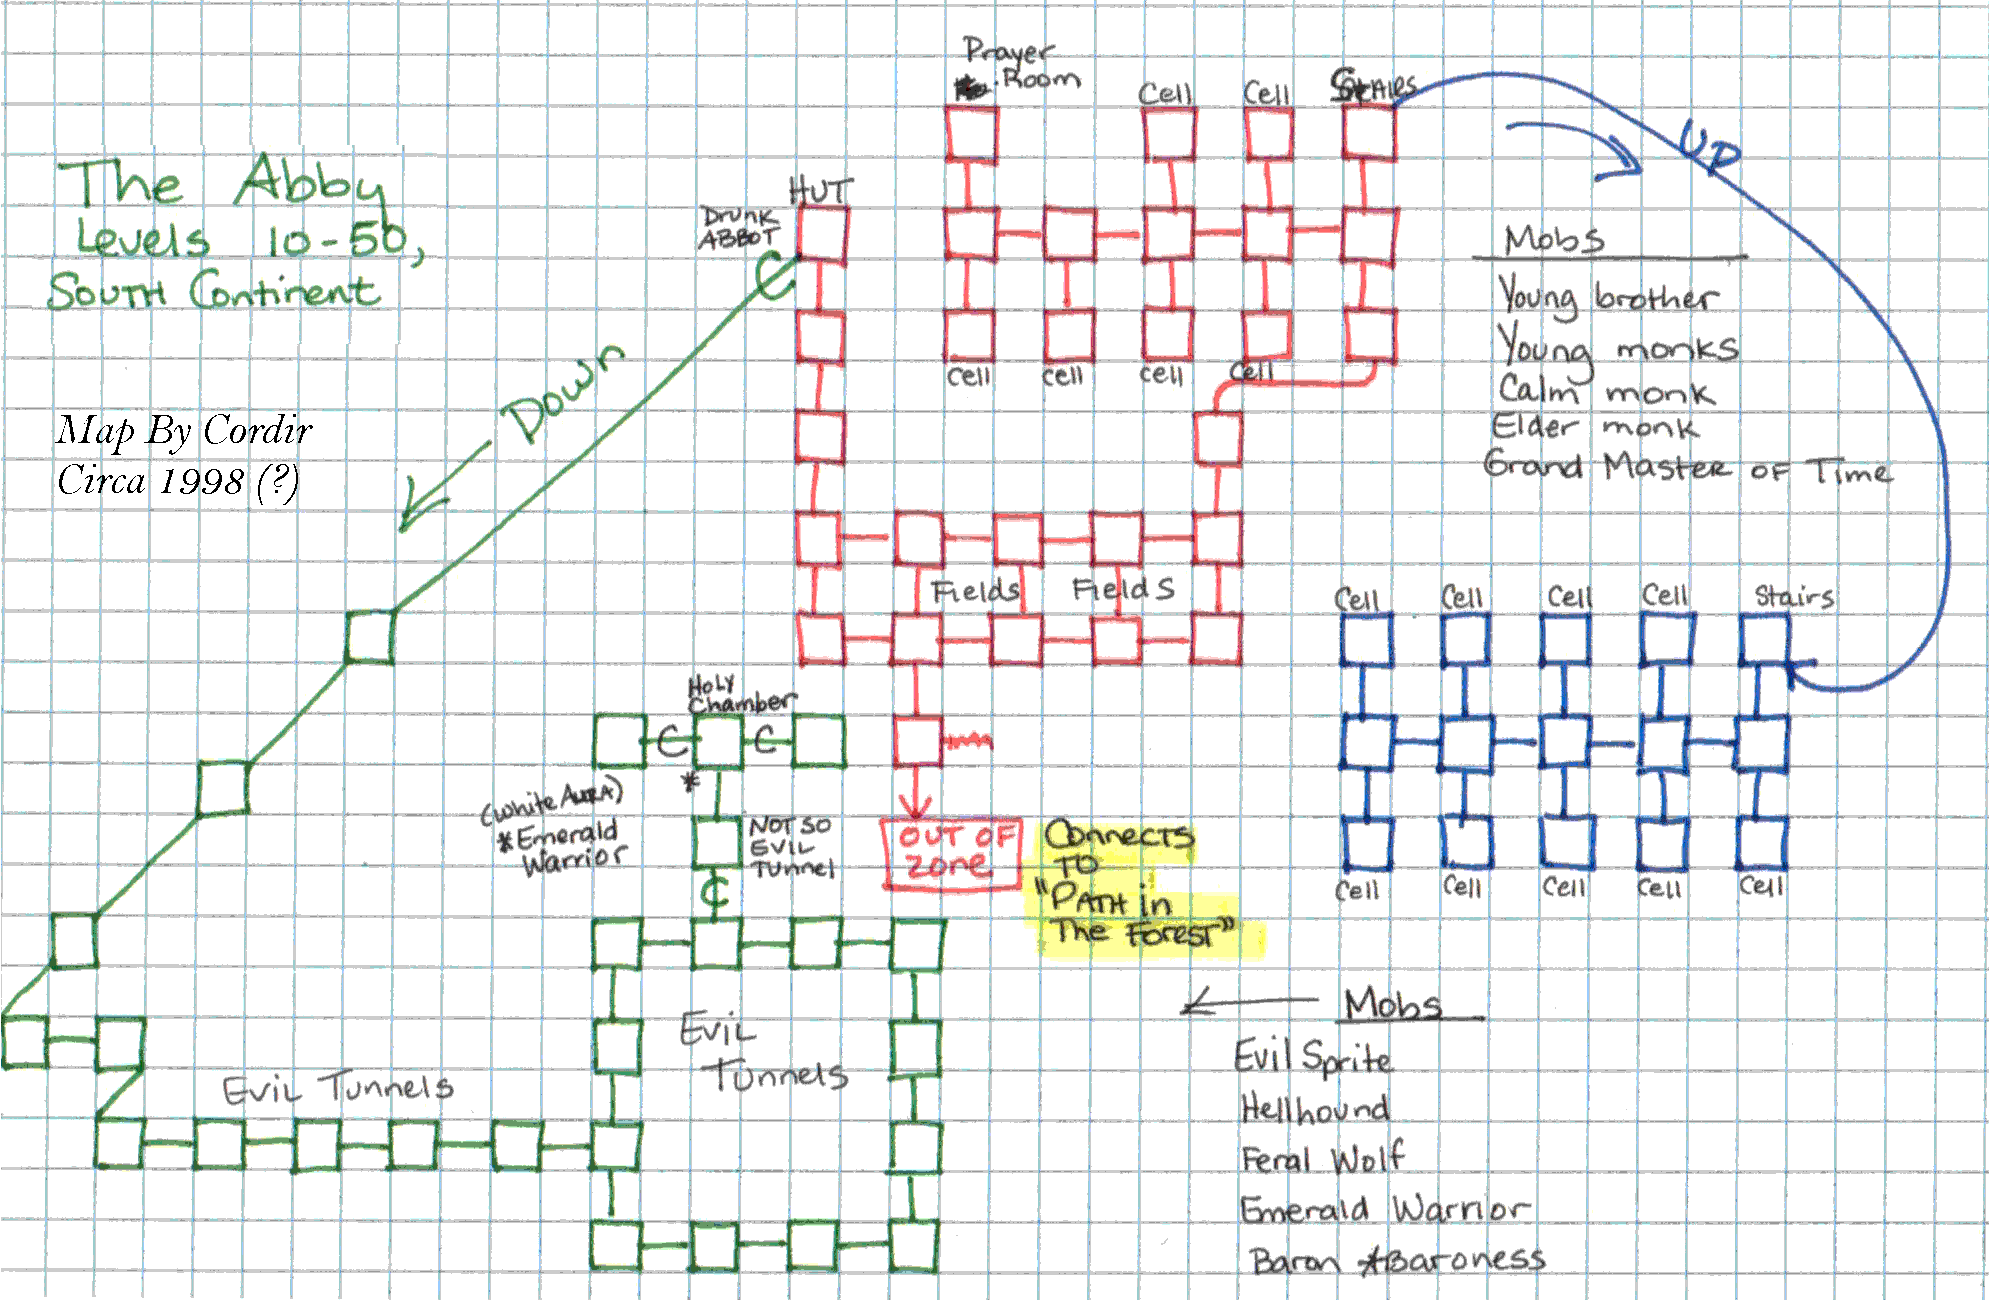 The Abby
Levels 10-50,
South Continent
Map By Cordir
Circa 1998 (?)
Down
HUT
Drunk
ABBOT
Prayer
Room
Cell
Cell
Stairs
UP
Cell
Cell
Cell
Cell
Mobs
Young brother
Young monks
Calm monk
Elder monk
Grand Master of Time
Fields
Fields
Cell
Cell
Cell
Cell
Stairs
Cell
Cell
Cell
Cell
Cell
Holy
Chamber
C
C
C
C
(White Aura)
*Emerald
Warrior
*
NOT SO
EVIL
Tunnel
OUT OF
Zone
Connects
To
"Path in
The Forest"
Evil
Tunnels
Evil Tunnels
Mobs
Evil Sprite
Hellhound
Feral Wolf
Emerald Warrior
Baron & Baroness